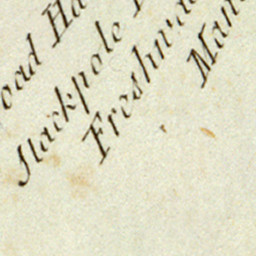 oad Ha
Stackpole
Freshwa
Man